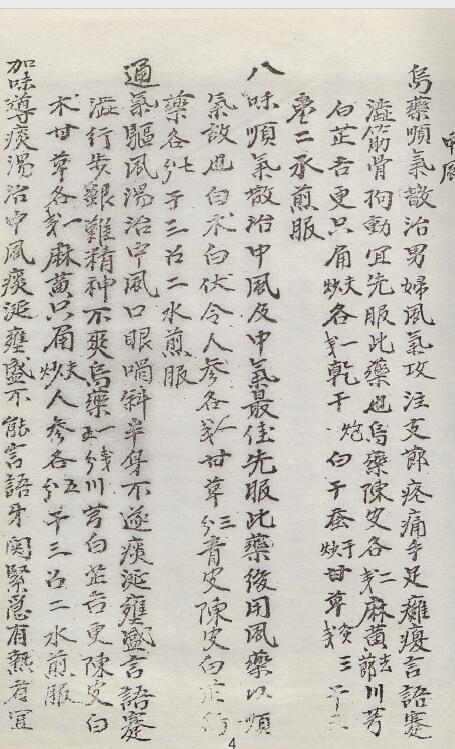 中風
烏藥順氣散治男婦風氣攻注支節疼痛手足癱瘓言語蹇
澁筋骨拘動宜先服此藥也烏藥陳皮各二戔麻黃去節川芎
白芷吉更只肩夫炒各一戔乾干炮白干蚕干炒甘草灸戔三干三
棗二水煎服
八味順氣散治中風及中氣最佳先服此藥後用風藥以順
氣故也白朮白伏令人參各一戔甘草三分青皮陳皮白芷烏
藥各七分干三召二水煎服
通氣驅風湯治中風口眼喎斜半身不遂痰涎壅盛言語蹇
澁行步艱難精神不爽烏藥一戔五分川芎白芷吉更陳皮白
朮甘草各一戔麻黃只肩夫炒人參各五分干三召二水煎服
加味導痰湯治中風痰涎壅盛不能言語牙関緊急有熱者宜
4